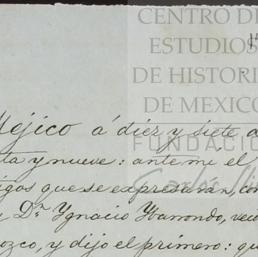 CENTRO DE
ESTUDIOS
DE HISTORI
DE MEXICO
FUNDACIÓ
Carlos
Méjico á diez y siete d
ta y nueve: ante mi el
igos que se expresaran, con
Dn Ygnacio Ybarrondo, veci
ozco, y dijo el primero: qu